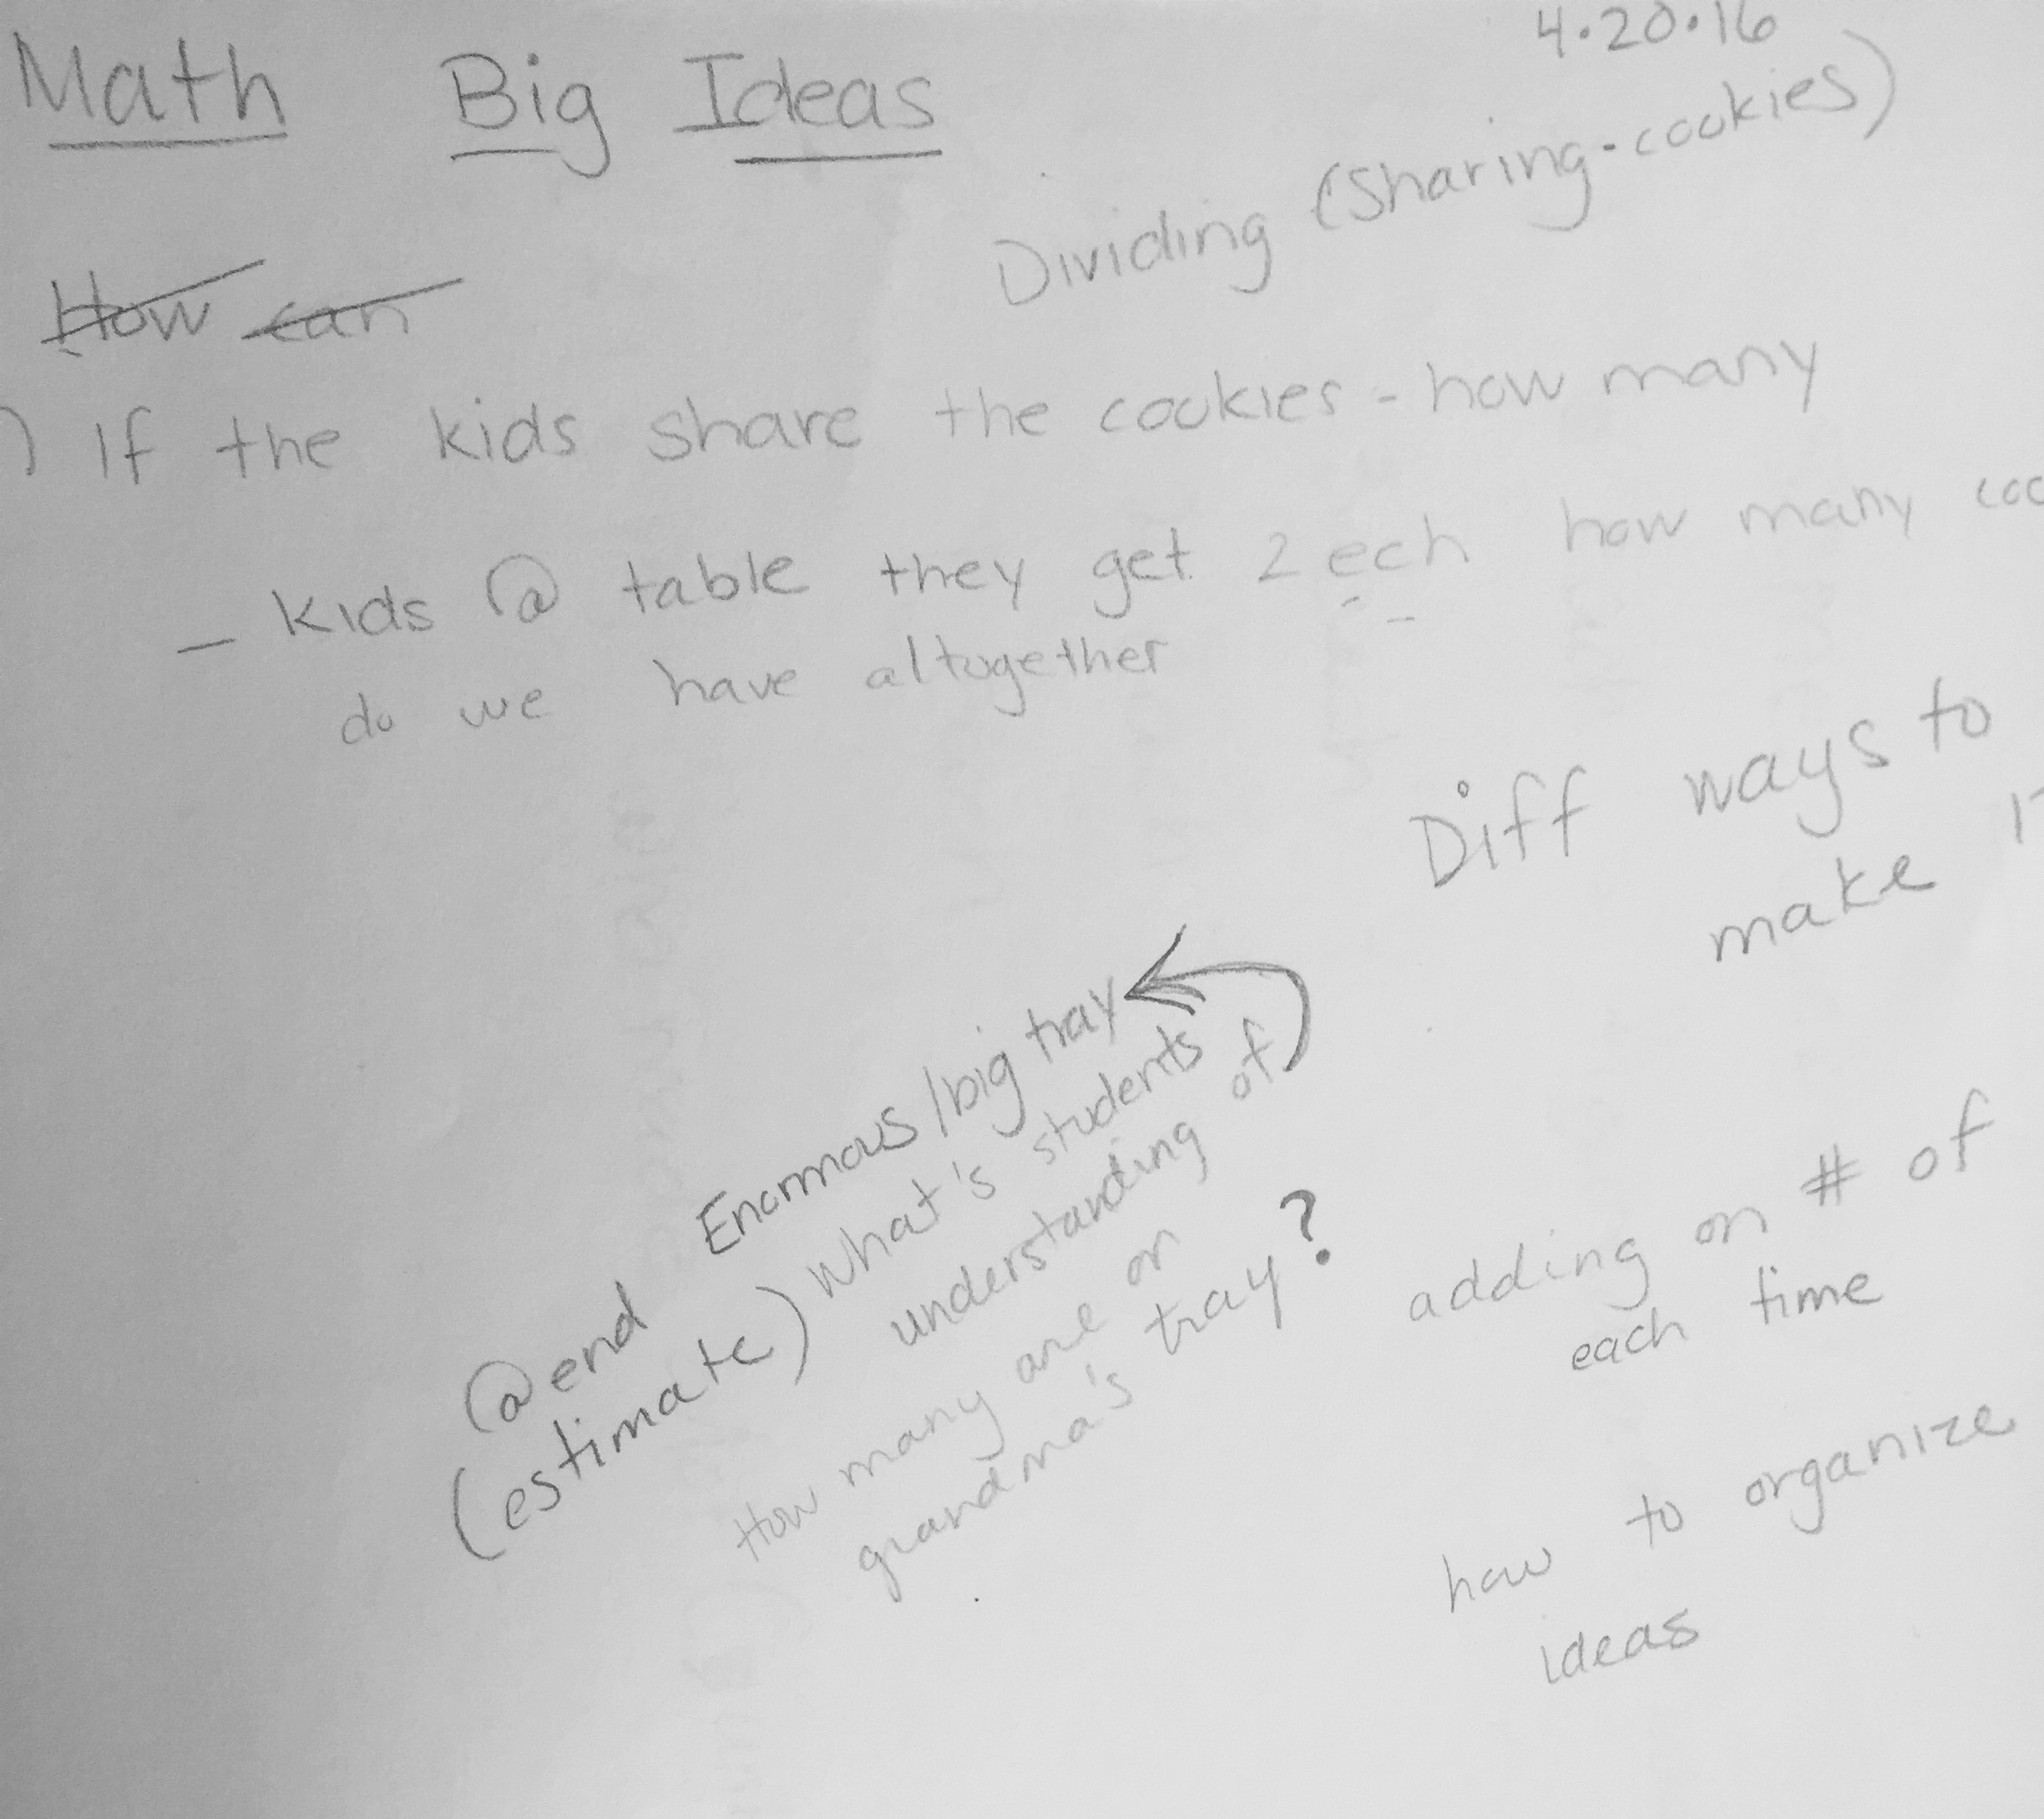 4.20.16
Math Big Ideas
Dividing (Sharing-cookies)
How can
) If the kids share the cookies - how many
- Kids @ table they get 2 ech how many coo
do we have altogether
Diff ways to
make 1
Enormous/big tray
What's students
understanding of
@end
(estimate)
How many are on
grandma's tray?
adding on # of
each time
how to organize
ideas